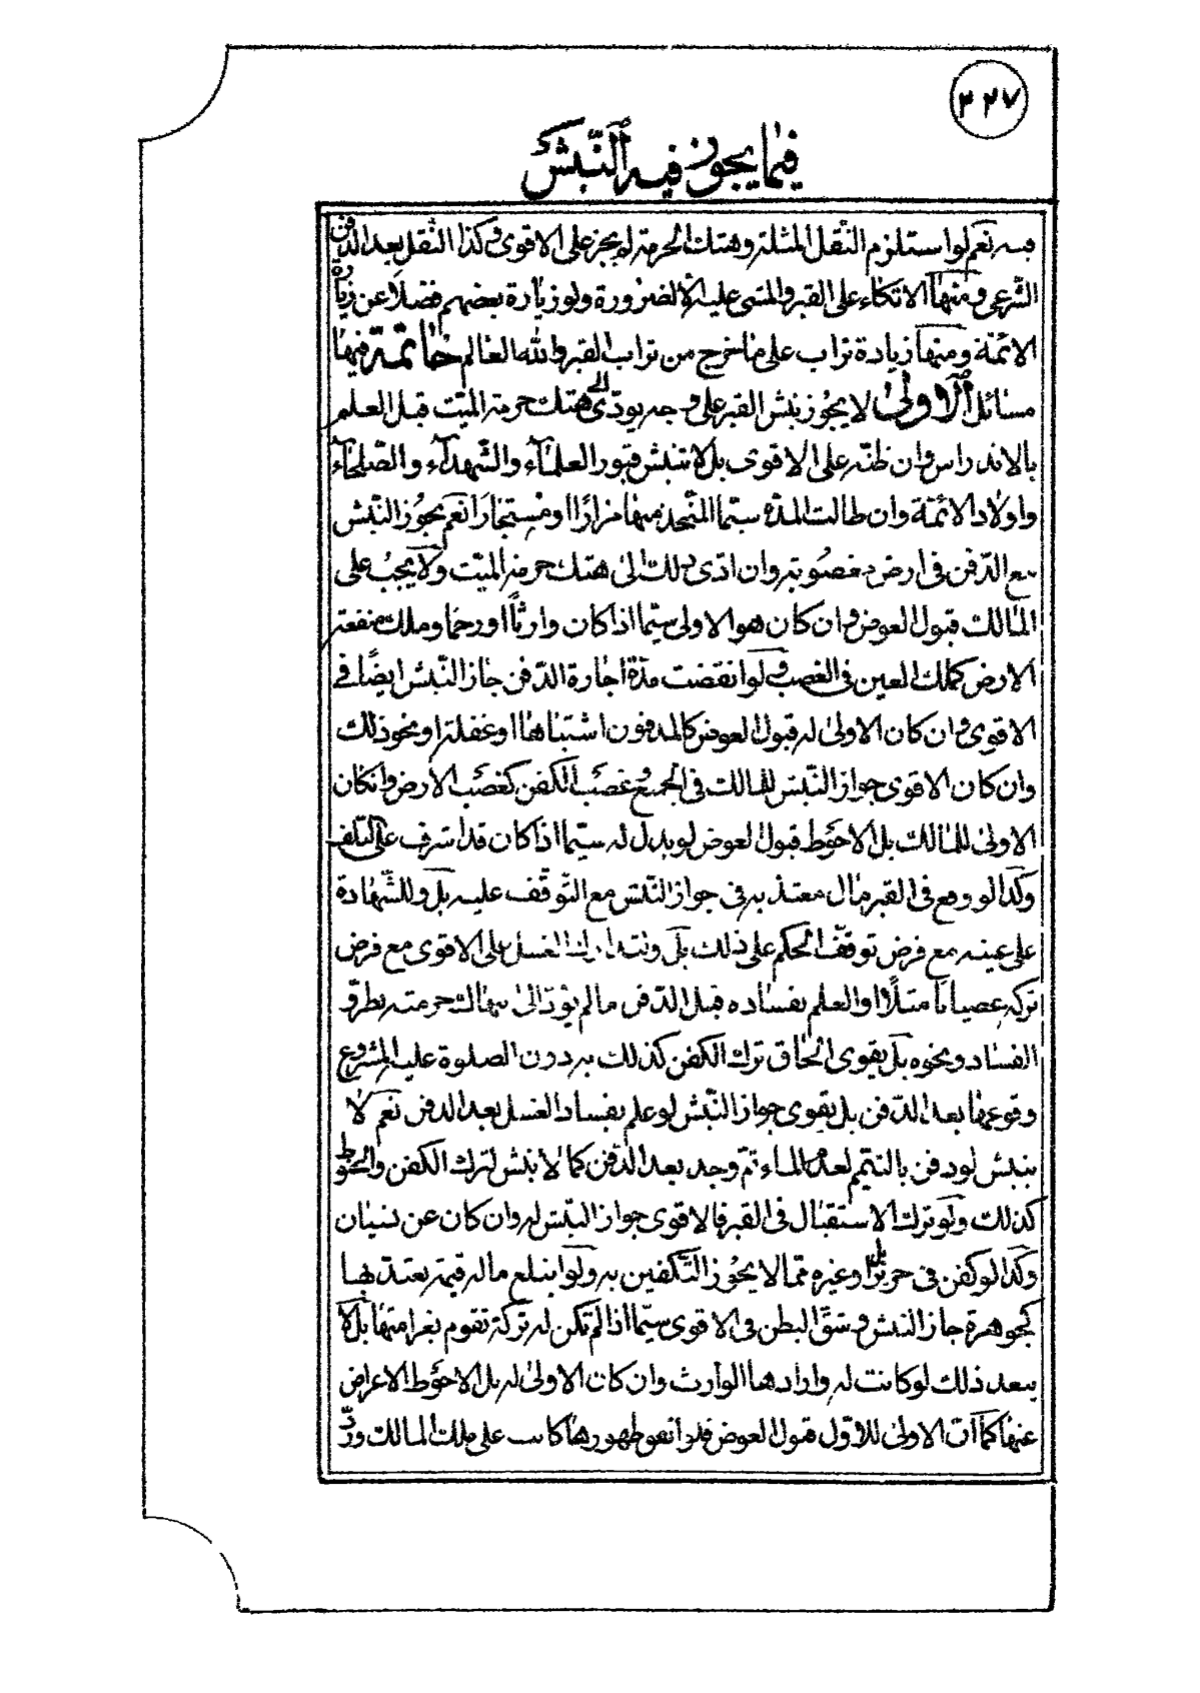 ٣٢٧
فيما يجوز فيه النّبش
فيه نعم لو استلزم النّقل المثلة وهتك الحرمة لم يجز على الاقوى وكذا النّقل بعد الدّفن
الشّرعي ومنها الاتكاء على القبر والمشي عليه الا لضرورة ولو زيارة بعضهم فضلًا عن زيارة
الائمّة ومنها زيادة تراب على ما خرج من تراب القبر والله العالم خاتمة فيها
مسائل الاولى لا يجوز نبش القبر على وجه يودّى الى هتك حرمة الميّت قبل العلم
بالاندراس وان ظنّه على الاقوى بل لا تنبش قبور العلمآء والشّهدآء والصّلحآء
واولاد الائمّة وان طالت المدّة سيّما المتّخذ منها مزارًا او مستجارًا نعم يجوز النّبش
مع الدّفن في ارض مغصوبة وان ادّى ذلك الى هتك حرمة الميّت ولا يجب على
المالك قبول العوض وان كان هو الاولى سيّما اذا كان وارثًا او رحما وملك منفعة
الارض كملك العين في الغصب ولو انقضت مدّة اجارة الدّفن جاز النّبش ايضًا في
الاقوى وان كان الاولى له قبول العوض كالمدفون اشتباها او غفلة او نحو ذلك
وان كان الاقوى جواز النّبش للمالك في الجميع وغصب الكفن كغصب الارض وانكان
الاولى للمالك بل الاحوط قبول العوض لو بذل له سيّما اذا كان قد اشرف على التّلف
وكذا لو وقع في القبر مال معتدّ به في جواز النّبش مع التّوقّف عليه بل وللشّهادة
على عينه مع فرض توقّف الحكم على ذلك بل الغسل على الاقوى مع فرض
تركه عصيانا مثلًا او العلم بفساده قبل الدّفن ما لم يؤدّ الى حرمته بطروّ
الفساد ونحوه بل يقوى الحاق ترك الكفن كذلك به دون الصلوة عليه المشروع
وقوعها بعد الدّفن بل يقوى جواز النّبش لو علم بفساد الغسل بعد الدفن نعم لا
ينبش لو دفن بالتيمّم لعدم الماء ثمّ وجد بعد الدّفن كما لا ينبش لترك الكفن والحنوط
كذلك ولو ترك الاستقبال في القبر فالاقوى جواز النّبش له وان كان عن نسيان
وكذا لو كفن في حرير او غيره ممّا لا يجوز التّكفين به ولو ابتلع ماله قيمة يعتدّ بها
كجوهرة جاز النبش وشقّ البطن في الاقوى سيّما اذا لم تكن له تركة تقوم بغرامتها بل لا
يبعد ذلك لو كانت له وارادها الوارث وان كان الاولى له بل الاحوط الاعراض
عنها كما انّ الاولى للاوّل قبول العوض فلو اتفق ظهورها كانت على ملك المالك وردّ